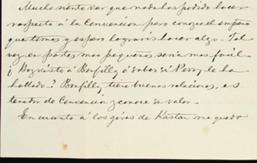 Mucho siento ver que nada ha podido hacer
respecto á la Convencion pero conozco el empeño
que tomas y espero lograrás hacer algo. Tal
vez en partes mas pequeñas seria mas facil.
¿Has visto á Bonfilly ó sabes si Perry le ha
hablado? Bonfilly tiene buenas relaciones, es
tenedor de Convencion y conoce su valor.
En cuanto á los giros de me quedo